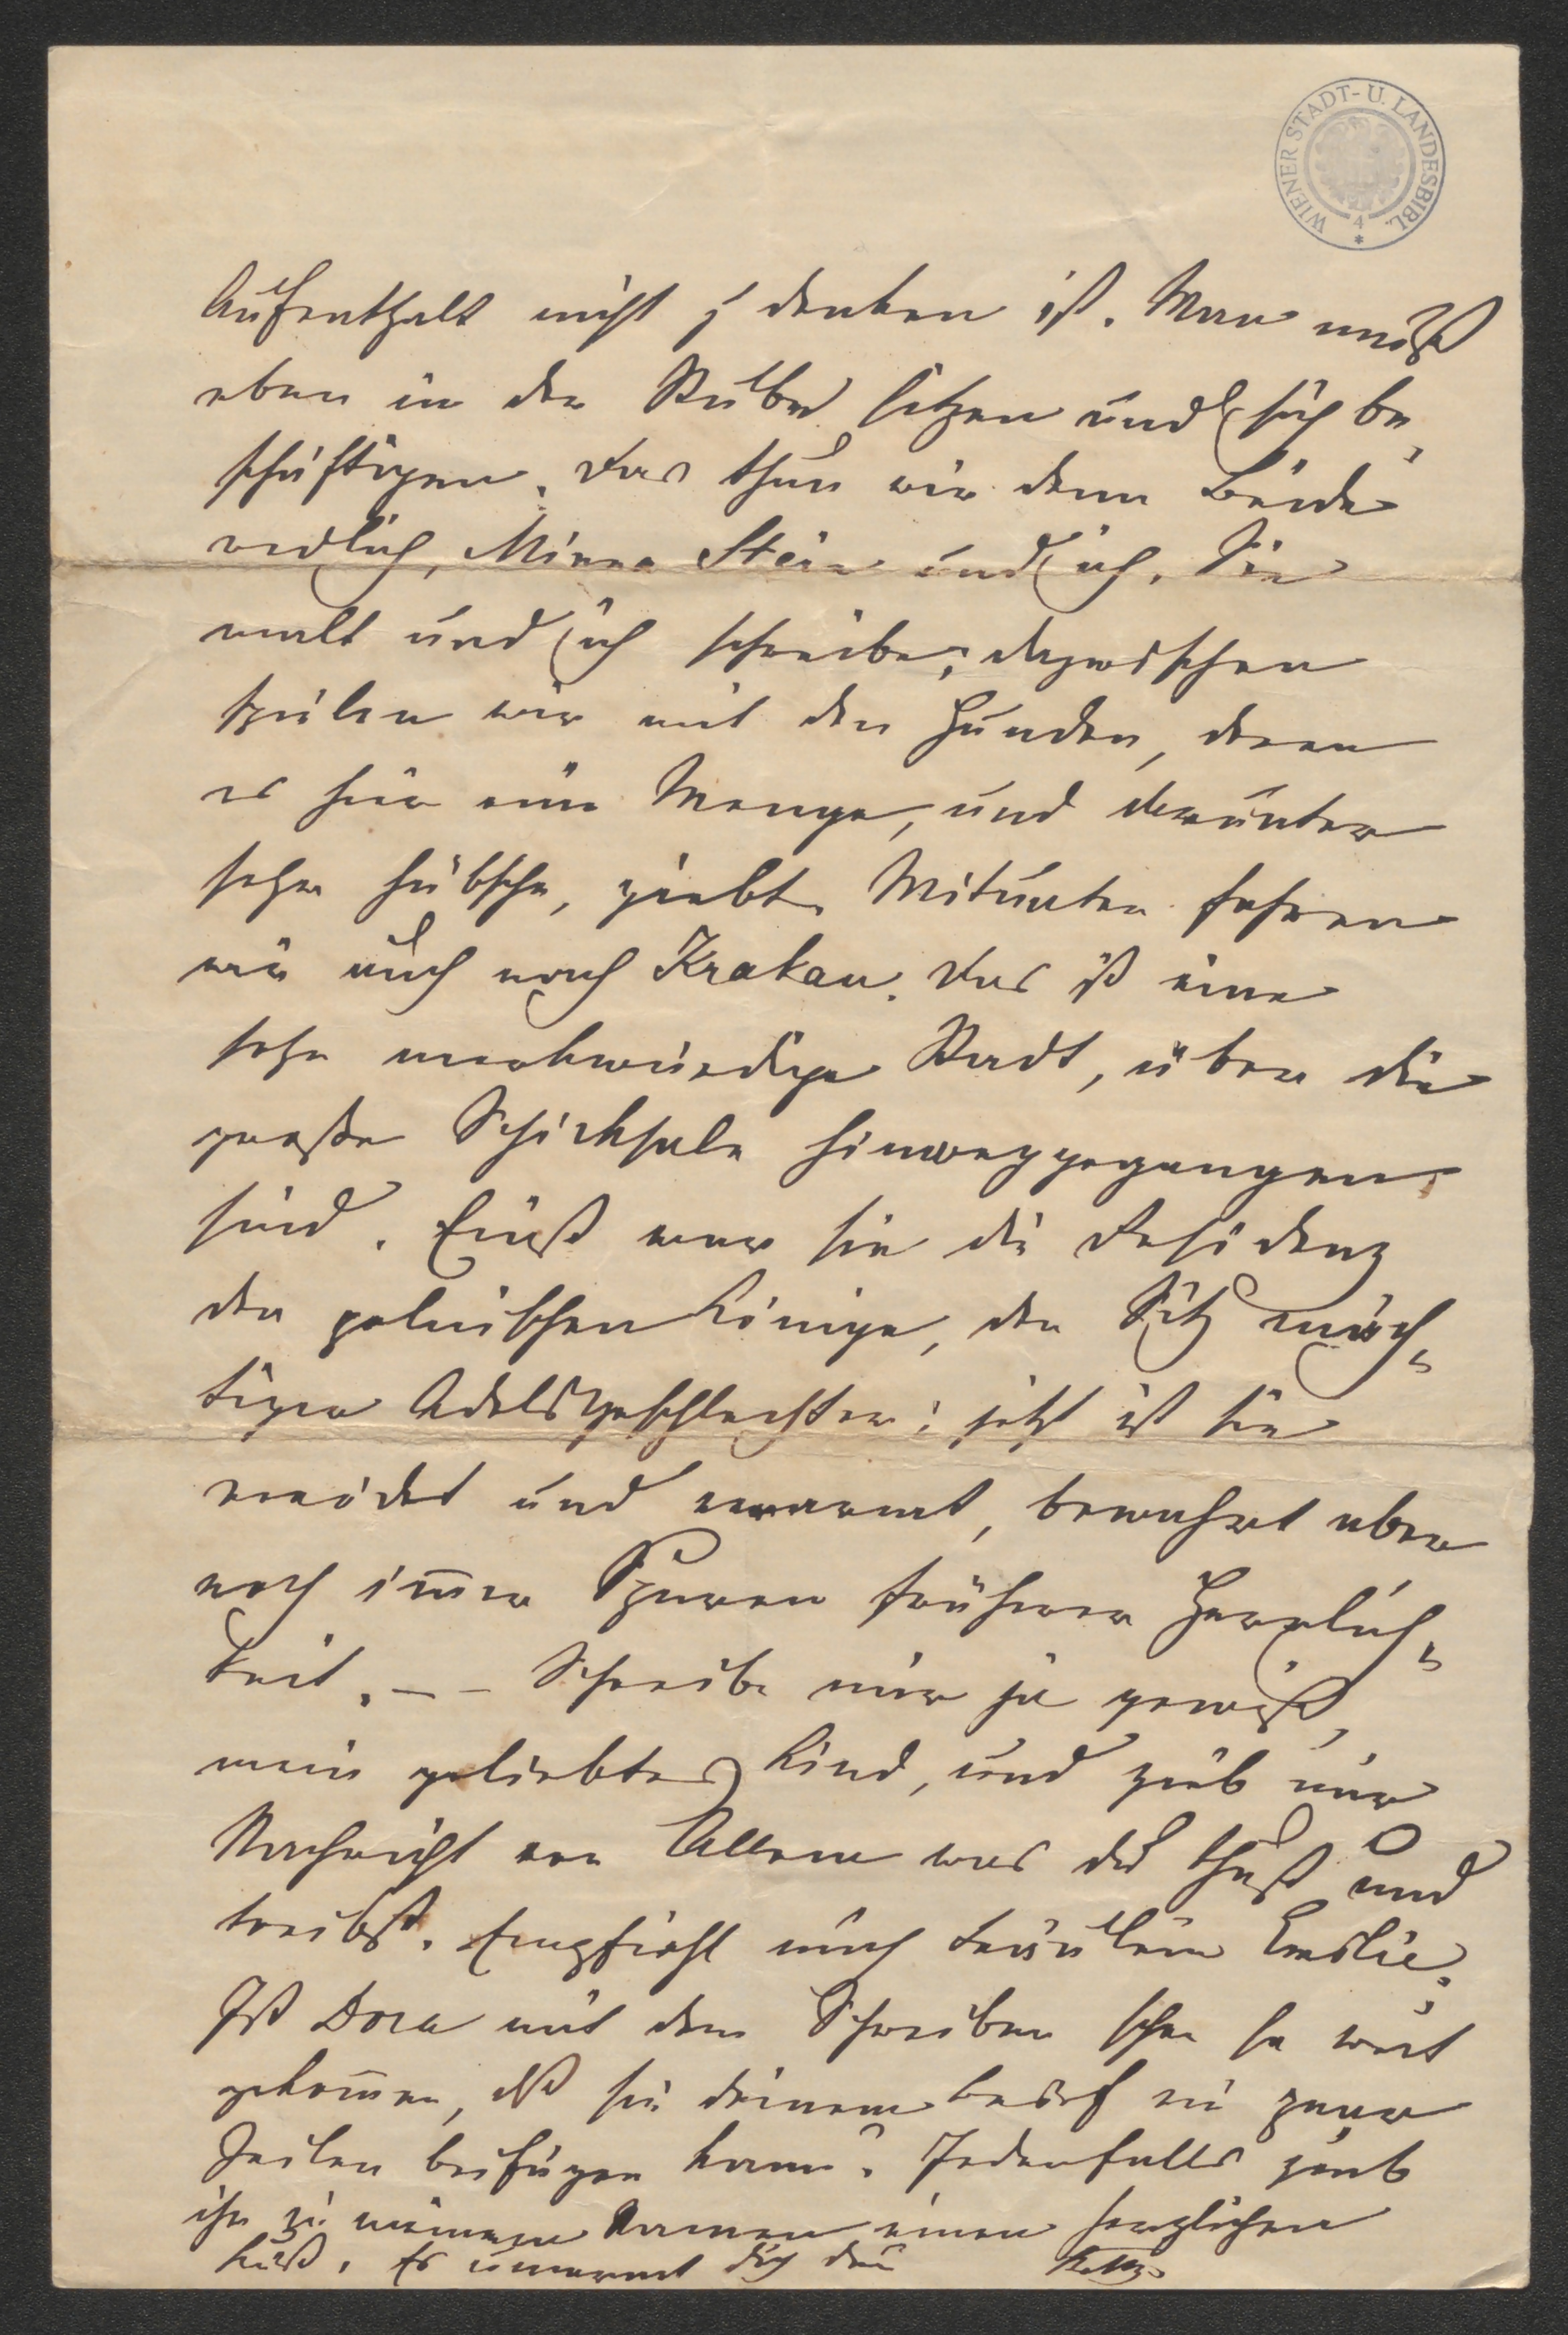 WIENER STADT- U. LANDESBIBL.
4
Aufenthalt nicht z denken ist. Man muß
eben in der Stube sitzen und sich be„
schäftigen. Das thun wir denn Beide
redlich, Minna Stein und ich. Sie
malt und ich schreibe; dazwischen
spielen wir mit den Hunden, deren
es hier eine Menge, und darunter
sehr hübsche, giebt. Mitunter fahren
wir auch nach Krakau. Das ist eine
sehr merkwürdige Stadt, über die
große Schicksale hinweggegangen
sind. Einst war sie die Residenz
der polnischen Könige, der Sitz mäch„
tiger Adelsgeschlechter; jetzt ist sie
verödet und verarmt, bewahrt aber
noch im̄er Spuren früherer Herrlich„
keit. – – Schreibe mir ja gewiß,
mein geliebtes Kind, und gieb mir
Nachricht von Allem was du thust und
treibst. Empfiehl mich Fräulein Emilie.
Ist Dora mit dem Schreiben schon so weit
gekom̄en, daß sie deinem Brief ein paar
Zeilen beifügen kann? Jedenfalls gieb
ihr in meinem Namen einen herzlichen
Kuß. Es umarmt dich dein